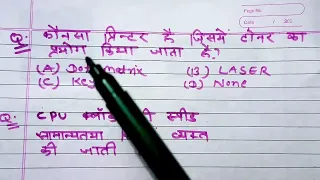 Q. कौनसा प्रिन्टर है जिसमें टोनर का
प्रयोग किया जाता है?
(A) Dot matrix (B) LASER
(C) Key (D) None
Q. CPU की स्पीड
सामान्यतया व्यक्त
की जाती